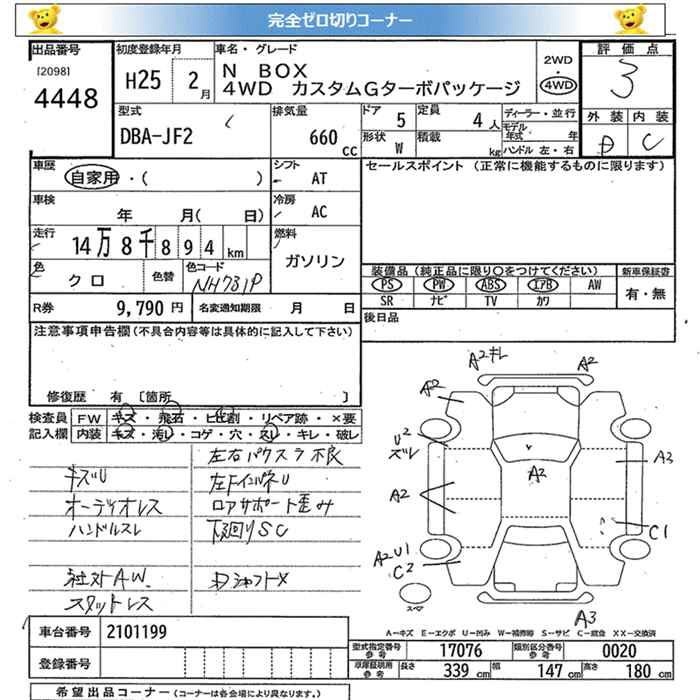 完全ゼロ切りコーナー
出品番号
[2098]
4448
初度登録年月
H25 2月
車名・グレード
N BOX
4WD カスタムGターボパッケージ
2WD
4WD
評価点
3
外装 内装
D C
型式
DBA-JF2
排気量
660 cc
ドア 5
定員 4人
形状 W
積載 kg
ディーラー・並行
モデル年式 年
ハンドル 左・右
車歴
自家用・( )
シフト
AT
セールスポイント (正常に機能するものに限ります)
車検
年 月( 日)
冷房
AC
走行
14万8千894km
燃料
ガソリン
色
クロ
色替
色コード
NH731P
装備品 (純正品に限り○をつけてください)
新車保証書
PS PW ABS エアB AW
SR ナビ TV カワ
有・無
R券 9,790円
名変通知期限 月 日
後日品
注意事項申告欄(不具合内容等は具体的に記入して下さい)
修復歴 有 〔箇所 〕
検査員記入欄
FW キズ・飛石・ヒビ割・リペア跡・×要
内装 キズ・汚レ・コゲ・穴・スレ・キレ・破レ
左右パワスラ不良
キズU
左FインパネU
オーディオレス
ロアサポート歪み
ハンドルスレ
下回りSC
社外A.W.
スタットレス
A2キレ
A2
A2
U2
ズレ
A2
A2
A3
C1
A2U1
C2
スペア
A3
車台番号 2101199
A-キズ E-エクボ U-凹み W-補修跡 S-サビ C-腐食 XX-交換済
型式指定番号 参考 17076
類別区分番号 参考 0020
登録番号
車庫証明用 参考 長さ 339cm 幅 147cm 高さ 180cm
希望出品コーナー (コーナーは各会場により異なります。)